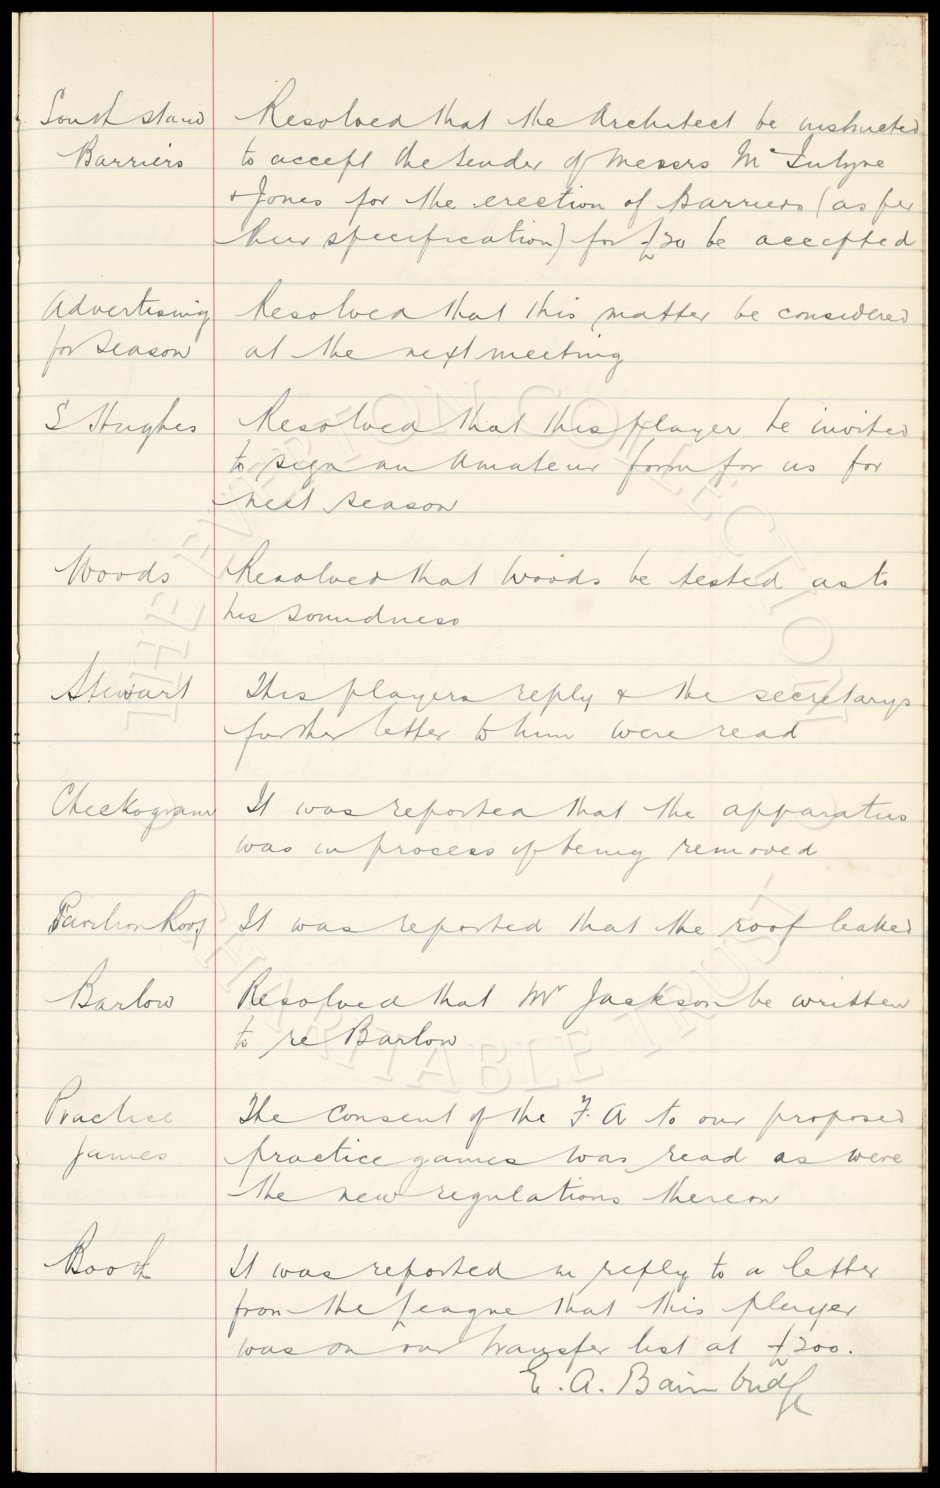 South Stand
Barriers
Resolved that the Architect be instructed
to accept the tender of Messrs Mc Intyre
& Jones for the erection of Barriers (as per
their specification) for £20 be accepted
Advertising
for Season
Resolved that this matter be considered
at the next meeting
E Hughes
Resolved that this player be invited
to sign an Amateur form for us for
next season
Woods
Resolved that Woods be tested as to
his soundness
Stewart
This players reply & the secretarys
further letter to him were read
Checkogram
It was reported that the apparatus
was in process of being removed
Pavilion Roof
It was reported that the roof leaked
Barlow
Resolved that Mr Jackson be written
to re Barlow
Practice
games
The consent of the F. A to our proposed
practice games was read as were
the new regulations thereon
Booth
It was reported in reply to a letter
from the League that this player
was on our transfer list at £200.
E. A. Bainbridge
THE EVERTON COLLECTION
CHARITABLE TRUST